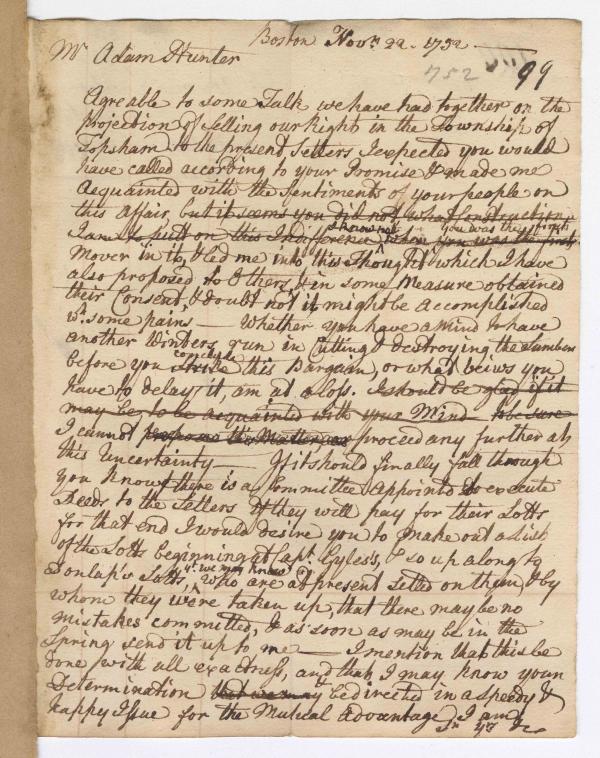 Boston Novr. 22. 1752.
Mr Adam Hunter
1752
99
Agreable to some Talk we have had together on the
projection of selling our Right in the Township of
Topsham to the present Setlers I expected you would
have called according to your Promise & made me
Acquainted with the Sentiments of your people on
this affair, but it seems you did not, what Construction
I know not you was the first
I am to putt on this Indifference, when you was the first
Mover in it, & led me into this Thought which I have
also proposed to Others, & in some Measure obtained
their Consent, & doubt not it might be accomplished
wth. some pains — Whether you have a Mind to have
another Winters run in Cutting & destroying the Lumber
conclude
before you strike this Bargain, or what veiws you
have to delay it, am at a loss. I should be glad if it
may be, to be acquainted with your Mind to be sure
I cannot this Matter proceed any further at
this Uncertainty — If it should finally fall through
You know there is a Committee Appointd to execute
Deeds to the Setlers if they will pay for their Lotts
for that end I would desire you to make out a List
of the Lotts beginning at Capt. Gyles's, & so up along to
yt. we may know
Dunlap's Lotts, who are at present setled on them, & by
whom they were taken up, that there may be no
mistakes committed, & as soon as may be in the
Spring send it up to me — I mention that this be
done with all exactness, and that I may know your
Determination that we may be directed in a speedy &
happy Issue for the Mutual Advantage, I am
Sr. yr &c